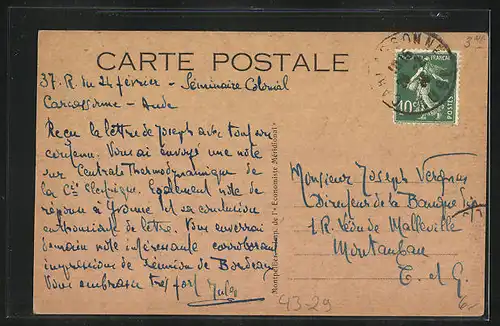 CARTE POSTALE
37. R. du 24 février - Séminaire Colonial
Carcassonne - Aude
Reçu la lettre de Joseph avec tout son
contenu. Vous ai envoyé une note
sur Centrale Thermodynamique de
la Cie Electrique. Egalement note de
réponse à Yvonne et sa
de lettre. Vous enverrai
demain note intéressante
impressions de de Bordeaux
Vous embrasse très fort
Montpellier. - Imp. de l'« Economiste Méridional »
CARCASSONNE
10c
POSTES
Monsieur Joseph
Directeur de la Banque
1 R. Léon de Malleville
Montauban
T. et G.
43-29